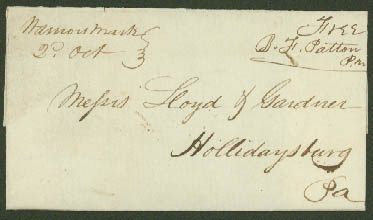 Warriors mark
2d Oct
Free
B. F. Patton
PM
Messrs Lloyd & Gardner
Hollidaysburg
Pa